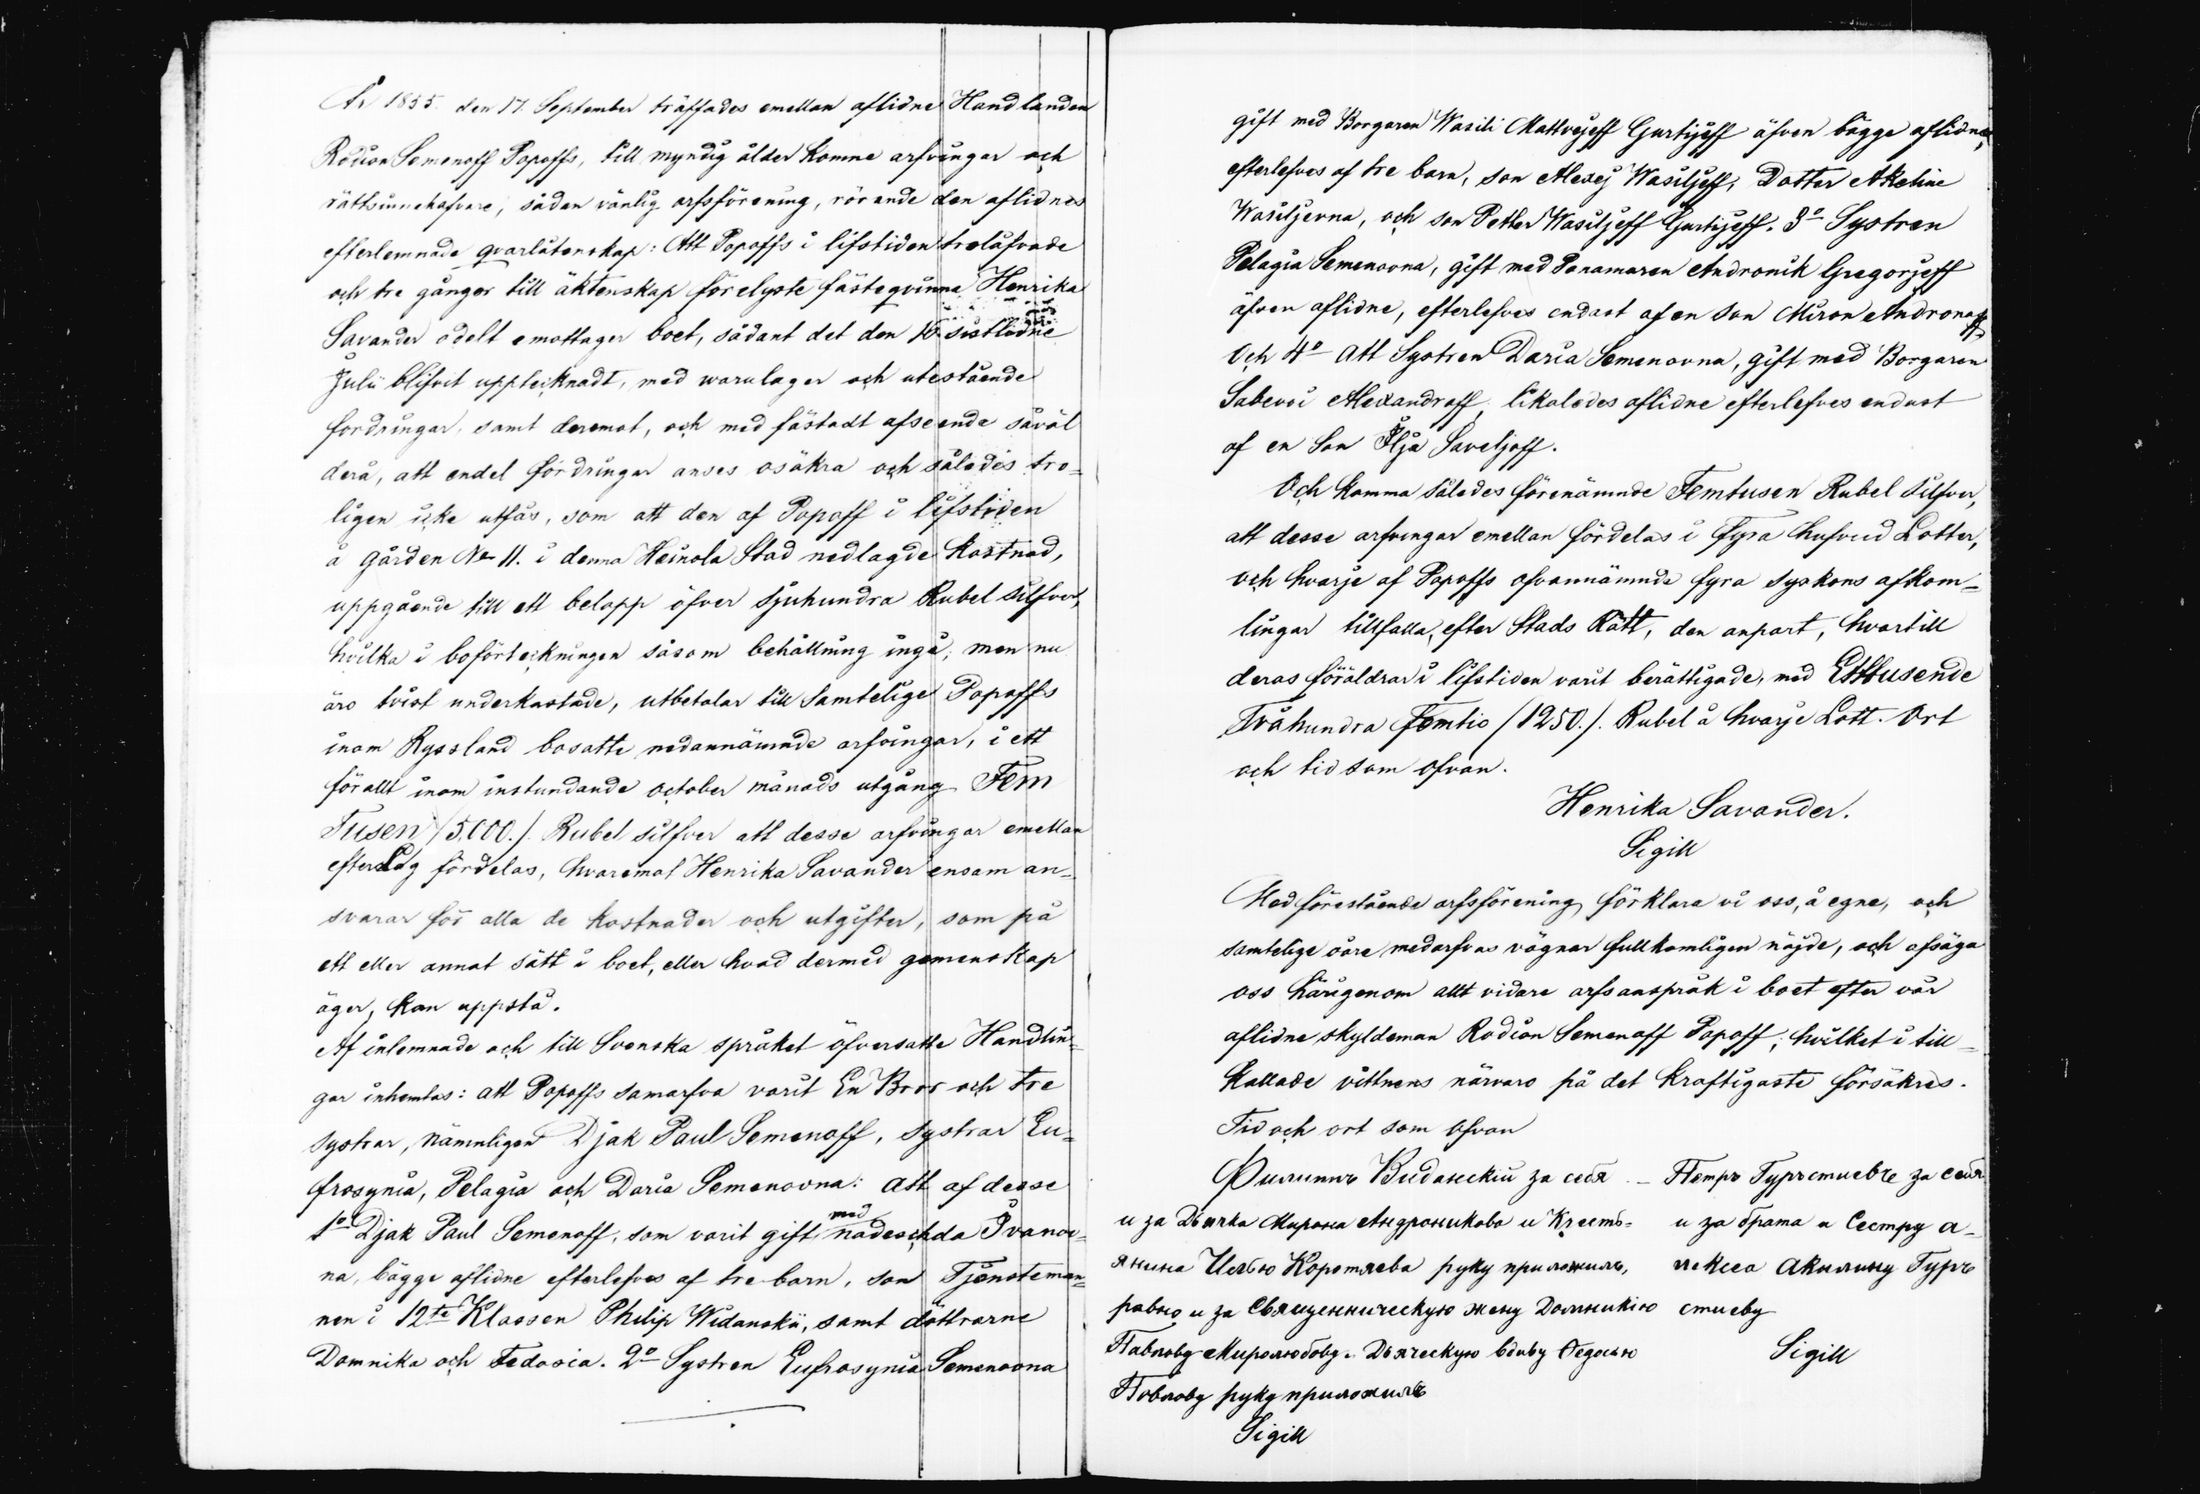 År 1855. den 17. September träffades emellan aflidne Handlanden
Rodion Semenoff Popoffs, till myndig ålder komne arfvingar och
rättsinnehafvare, sådan vänlig arfsförening, rörande den aflidnes
efterlemnade qvarlåtenskap: Att Popoffs i lifstiden trolåfvade
och tre gånger till äktenskap förelyste fästeqvinna Henrika
Savander odelt emottager boet, sådant det den 16 sistlidne
Julii blifvit upptecknadt, med varulager och utestående
fordringar, samt deremot, och med fästadt afseende såväl
derå, att endel fordringar anses osäkra och således tro-
ligen icke utfås, som att den af Popoff i lifstiden
å gården No 11. i denna Heinola Stad nedlagde kostnad,
uppgående till ett belopp öfver sjuhundra Rubel silfver,
hvilka i boförteckningen såsom behållning ingå, men nu
äro tvist underkastade, utbetalar till Samtelige Popoffs
inom Ryssland bosatte nedannämnde arfvingar, i ett
förallt inom instundande october månads utgång Fem
Tusen /5,000./. Rubel silfver att desse arfvingar emellan
efter Lag fördelas, hvaremot Henrika Savander ensam an-
svarar för alla de kostnader och utgifter, som på
ett eller annat sätt i boet, eller hvad dermed gemenskap
äger, kan uppstå.
Af inlemnade och till Svenska språket öfversatte Handlin-
gar inhemtas: att Popoffs samarfva varit En Bror och tre
systrar, nämnligen Djak Paul Semenoff, systrar Eu-
frosynia, Pelagia och Daria Semenovna: att af desse
1o Djak Paul Semenoff, som varit gift med Nadeschda Ivanov-
na, bägge aflidne efterlefves af tre barn, son Tjensteman-
nen i 12te Klassen Philip Widanskii, samt döttrarne
Domnika och Fedosia. 2o Systren Eufrosynia Semenovna
gift med Borgaren Wasili Mattvejeff Gurtijeff äfven bägge aflidne,
efterlefves af tre barn, son Alexej Wasiljeff, Dotter Akeline
Wasiljevna, och son Petter Wasiljeff Gurtijeff. 3o Systren
Pelagia Semenovna, gift med Ponamaren Andronik Gregorjeff
äfven aflidne, efterlefves endast af en son Miron Andronoff,
Och 4o att Systren Daria Semenovna, gift med Borgaren
Saveroi Alexandroff, likaledes aflidne efterlefves endast
af en Son Ilja Saveljoff.
Och komma således förenämnde Femtusen Rubel silfver,
att desse arfvingar emellan fördelas i Fyra hufvud Lotter,
och hvarje af Popoffs ofvannämnde fyra syskons afkom-
lingar tillfalla, efter Stads Rätt, den anpart, hvartill
deras föräldrar i lifstiden varit berättigade, med Etttusende
Tvåhundra femtio /1250./. Rubel å hvarje Lott. Ort
och tid som ofvan.
Henrika Savander.
Sigill
Med förestående arfsförening förklara vi oss, å egne, och
samtelige våre medarfvas vägnar fullkomligen nöjde, och afsäga
oss härigenom allt vidare arfsanspråk i boet efter vår
aflidne skyldeman Rodion Semenoff Popoff; hvilket i till-
kallade vittnens närvaro på det kraftigaste försäkres.
Tid och ort som ofvan
Филиппъ Виданскiй за себя
и за Дьячка Мирона Андроникова и Кресть-
янина Илью Коротяева руку приложилъ,
равно и за Священническую жену Домникiю
Павлову Миролюбову. Дьяческую вдову Федосью
Повлову руку приложилъ
Sigill
Петръ Гурьстиевъ за себя
и за брата и Сестру а-
лексея Акилину Гурь
стиеву
Sigill